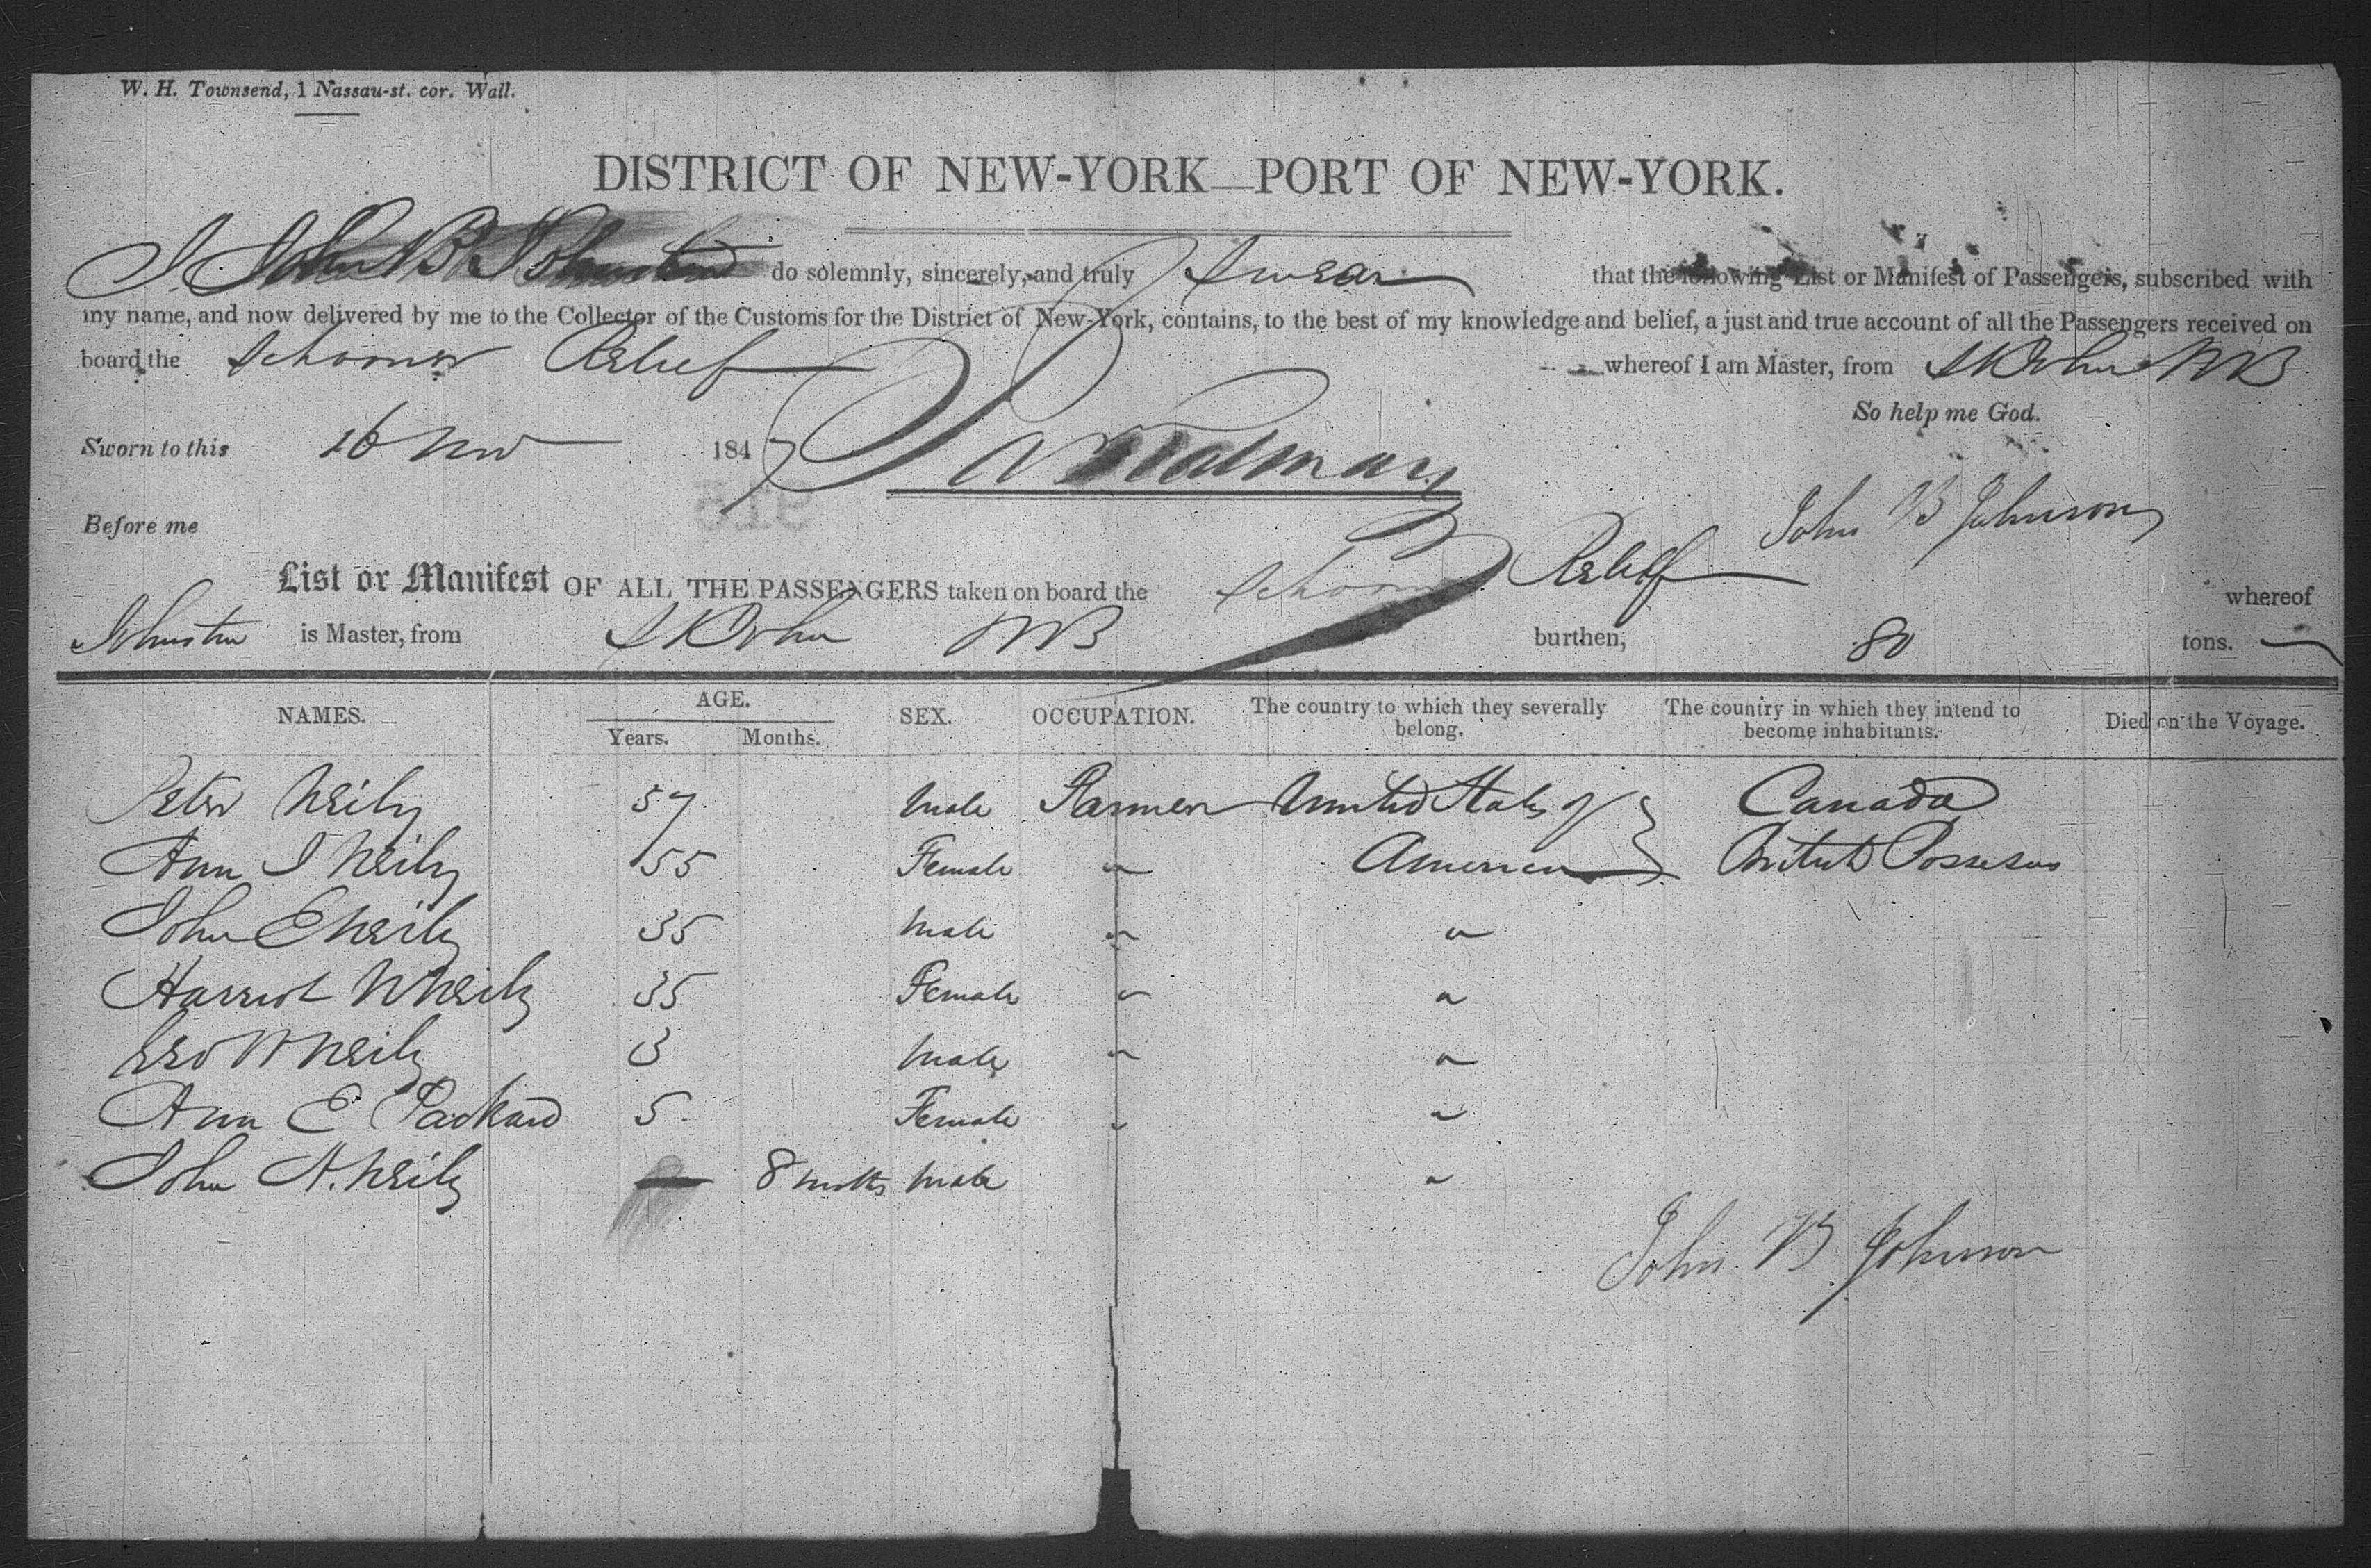 W. H. Townsend, 1 Nassau-st. cor. Wall.
DISTRICT OF NEW-YORK—PORT OF NEW-YORK.
I, John B Johnston do solemnly, sincerely, and truly Swear that the following List or Manifest of Passengers, subscribed with
my name, and now delivered by me to the Collector of the Customs for the District of New-York, contains, to the best of my knowledge and belief, a just and true account of all the Passengers received on
board the Schooner Relief whereof I am Master, from St John NB
So help me God.
Sworn to this 16 Nov 1847
Before me John B Johnson
List or Manifest OF ALL THE PASSENGERS taken on board the Schooner Relief whereof
Johnston is Master, from St John NB burthen, 80 tons.
NAMES. AGE. SEX. OCCUPATION. The country to which they severally belong. The country in which they intend to become inhabitants. Died on the Voyage.
Years. Months.
Peter Neily 57 Male Farmer United States of Canada
Ann I Neily 55 Female " America British
John E Neily 35 Male " "
Harriot N Neily 35 Female " "
Geo W Neily 3 Male " "
Ann E Packard 5 Female " "
John A. Neily — 8 Male "
John B Johnson